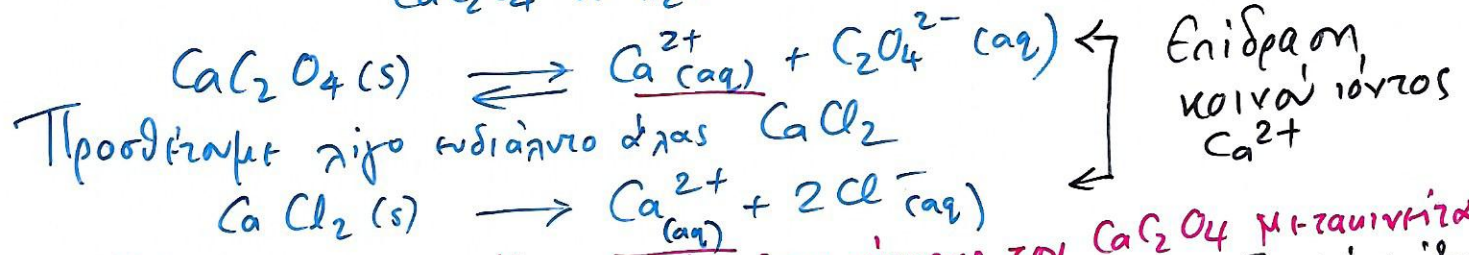 CaC₂O₄(s) ⇌ Ca²⁺(aq) + C₂O₄²⁻(aq)
Επίδραση
κοινού ιόντος
Ca²⁺
Προσθέτουμε λίγο ευδιάλυτο άλας CaCl₂
CaCl₂(s) → Ca²⁺(aq) + 2Cl⁻(aq)
CaC₂O₄